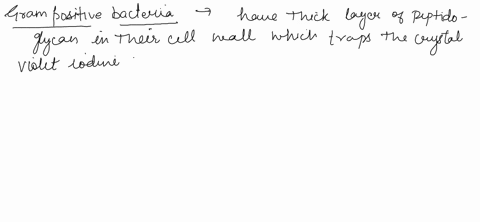 Gram positive bacteria → have thick layer of peptido-
glycan in their cell wall which traps the crystal
violet iodine.